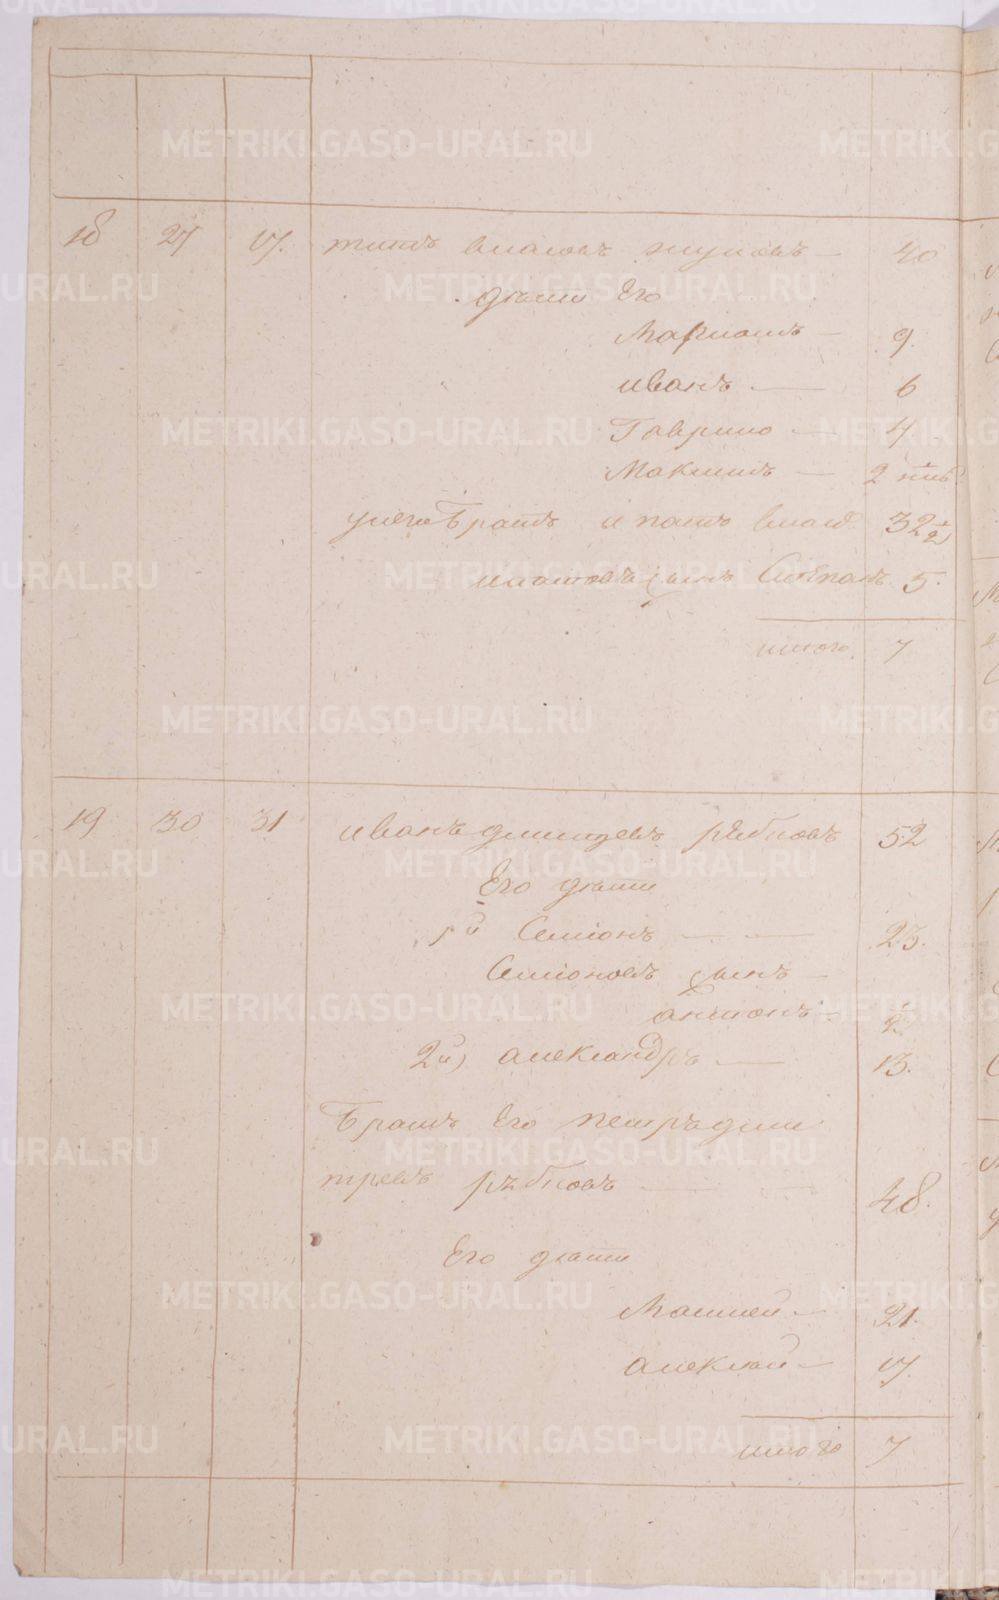 18 27 17. титъ власовъ жуковъ — 40
дѣти Его
Мартынъ — 9.
иванъ — 6
Гаврило — 4
Максимъ — 2
Братъ власов 32 1/2
сынъ Степанъ 5.
итого 7
19 30 31 иванъ дмитревъ рѣбковъ 52
Его дѣти
1й Семіонъ — — 23.
Семіоновъ сынъ —
антонъ — 1/2
2й) александръ — 13.
Братъ Его петръ дми
тревъ рѣбковъ — — 48.
Его дѣти
Матвей — 21.
алексѣй — 17.
итого 7
METRIKI.GASO-URAL.RU